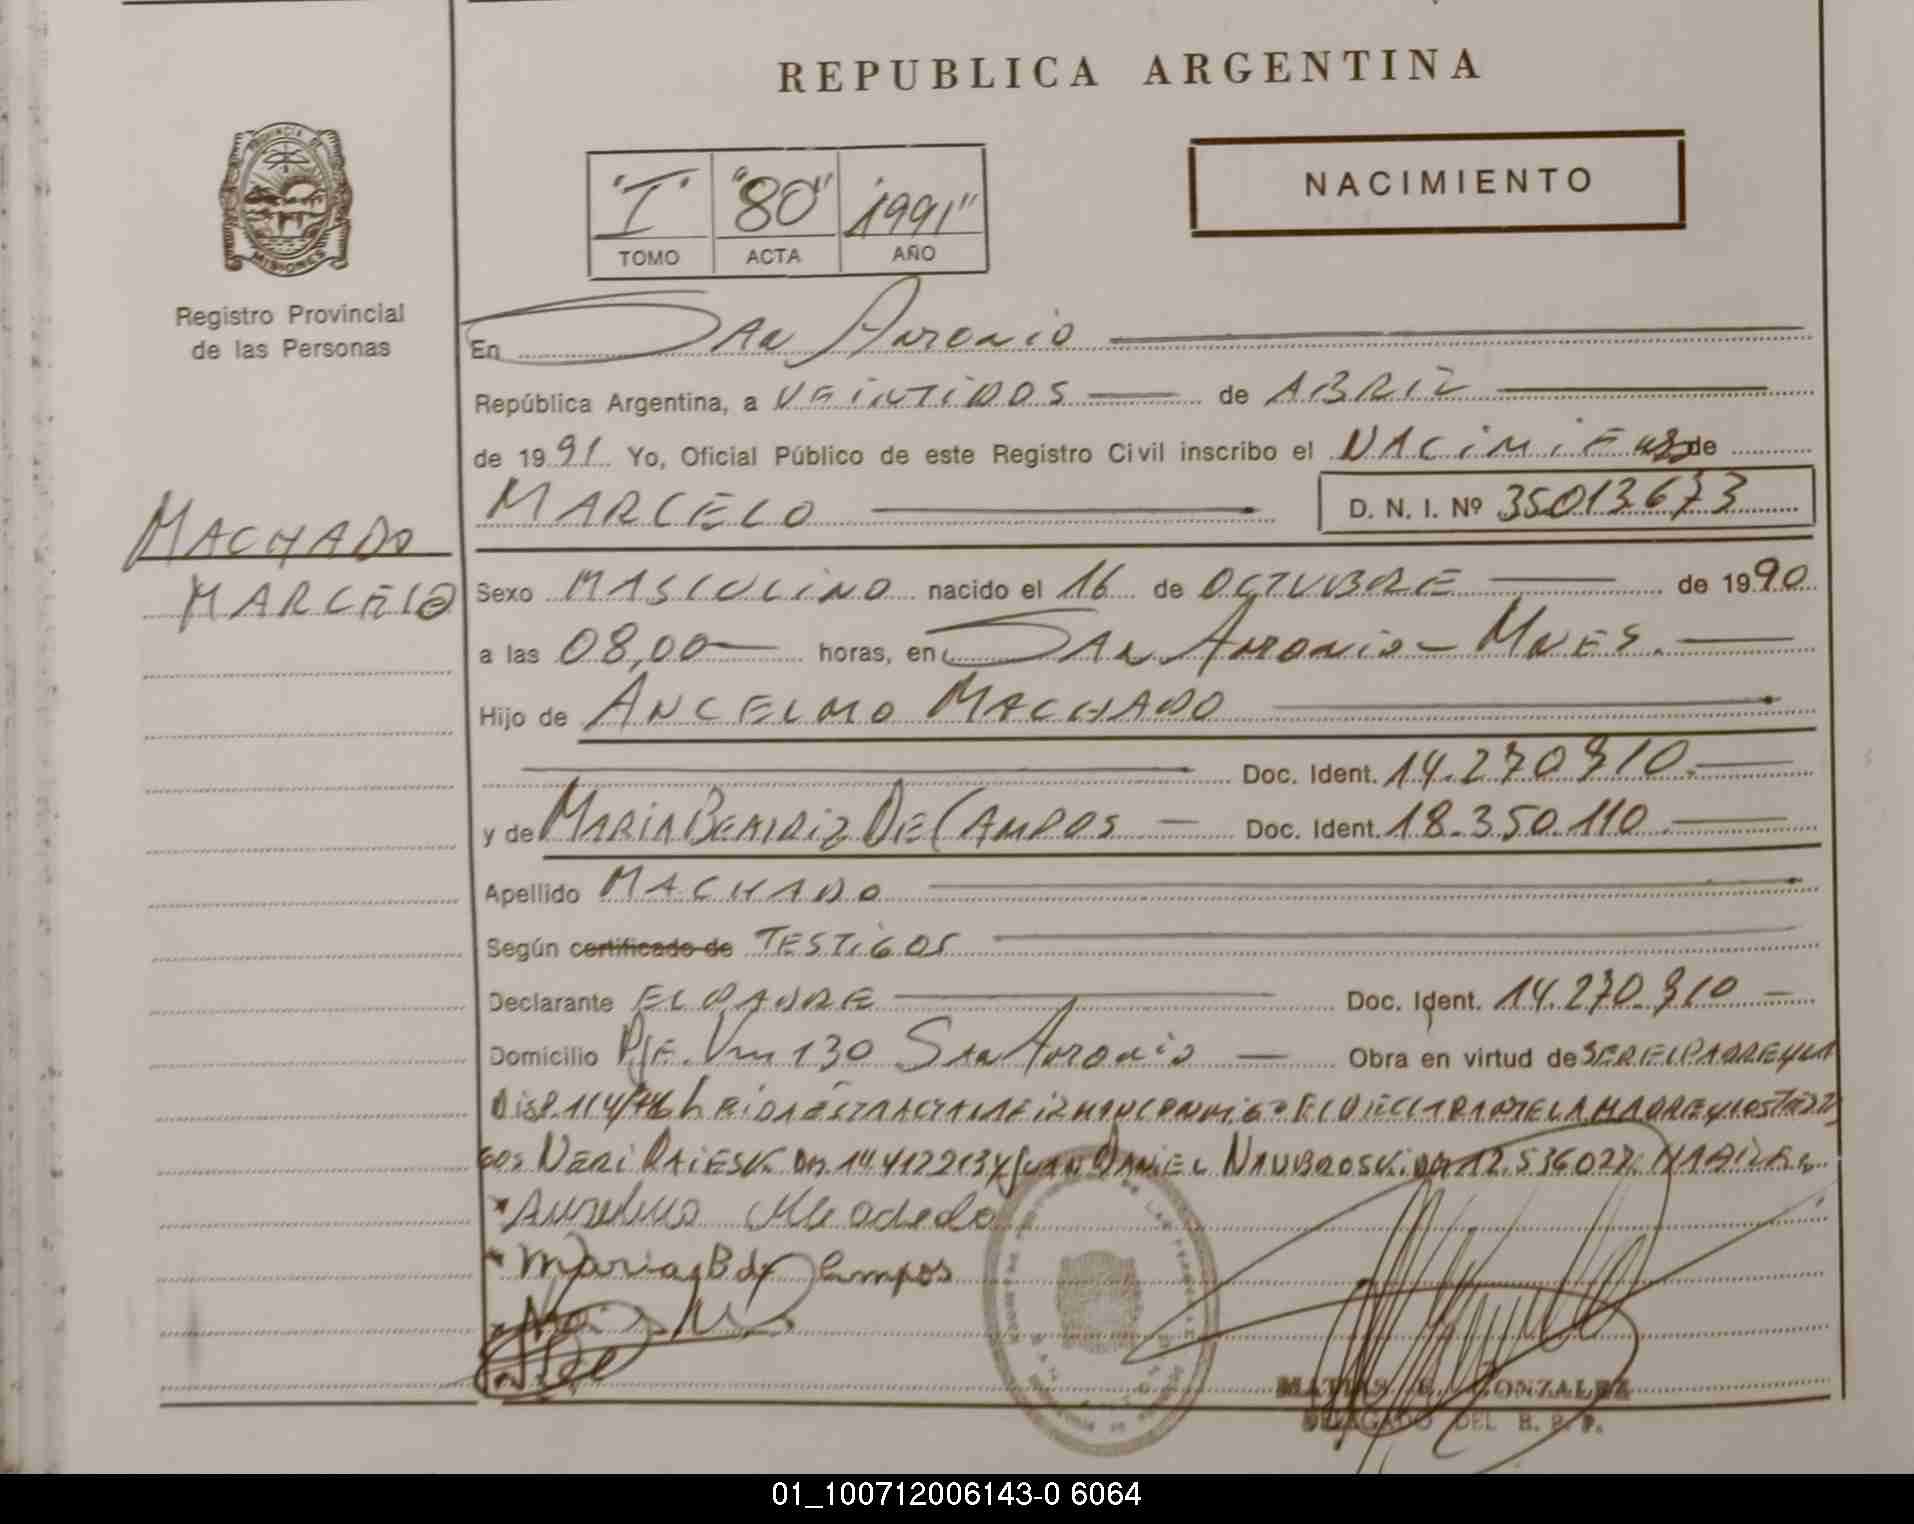 REPUBLICA ARGENTINA
"I" "80" "1991"
TOMO ACTA AÑO
NACIMIENTO
PROVINCIA DE
MISIONES
Registro Provincial
de las Personas
En San Antonio
República Argentina, a VEINTIDOS de ABRIL
de 1991 Yo, Oficial Público de este Registro Civil inscribo el NACIMIENTO de
MARCELO D. N. I. Nº 35013673
MACHADO
MARCELO
Sexo MASCULINO nacido el 16 de OCTUBRE de 1990
a las 08,00 horas, en San Antonio - MNES.
Hijo de ANCELMO MACHADO
Doc. Ident. 14.270.910.
y de MARIA BEATRIZ DE CAMPOS Doc. Ident. 18.350.110
Apellido MACHADO
Según certificado de TESTIGOS
Declarante EL PADRE Doc. Ident. 14.270.910
Domicilio PJE. 130 San Antonio Obra en virtud de SER EL PADRE Y LA
LEIDA ESTA ACTA LA FIRMAN CONMIGO EL DECLARANTE LA MADRE Y LOS TESTI
GOS NERI Y JUAN DANIEL
Machado
Maria B de Campos
MATIAS GONZALEZ
DELEGADO DEL R. P. P.
01_100712006143-0 6064